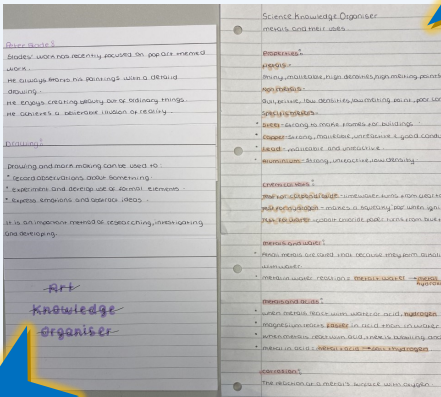 Peter Slade:
Slades' work has recently focused on pop art themed
work.
He always starts his paintings with a detailed
drawing.
He enjoys creating beauty out of ordinary things.
He achieves a believable illusion of reality.
Drawing:
Drawing and mark making can be used to:
* Record observations about something
* Experiment and develop use of formal elements
* Express emotions and ideas.
It is an important method of researching, investigating
and developing.
Art
Knowledge
Organiser
Science Knowledge Organiser
metals and their uses.
Properties:
Metals-
Shiny, malleable, high densities, high melting points
Non metals-
dull, brittle, low densities, low melting point, poor
Specific metals-
* Steel - strong to make frames for buildings
* Copper - strong, malleable, unreactive & good
* Lead - malleable and unreactive
* Aluminium - strong, unreactive, low density
Chemical tests:
limewater turns from
makes a squeaky pop when
cobalt chloride paper turns from blue
Metals and water:
with water.
* metal in water reactions: metal + water → metal
Metals and acids:
* When metals react with water or acid, hydrogen
* magnesium reacts faster in acid than in water
* when metals react with acid, there is bubbling and
* metal in acid: metal + acid → salt + hydrogen
Corrosion:
The reaction of a metal's surface with oxygen.